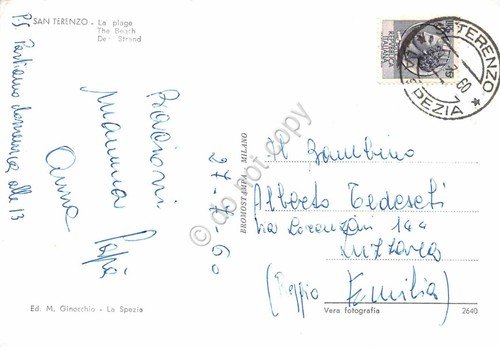 SAN TERENZO - La plage
The Beach
Der Strand
Bacioni
mamma Papà
Anna
27-7-60
PS Partiamo domenica alle 13
Ed. M. Ginocchio - La Spezia
BROMOSTAMPA - MILANO
POSTE
REPUBBLICA
ITALIANA
S. TERENZO
60
SPEZIA
Al Bambino
Alberto Tedeschi
Via Lorenzani 144
Luzzara
(Reggio Emilia)
Vera fotografia
2640
do not copy